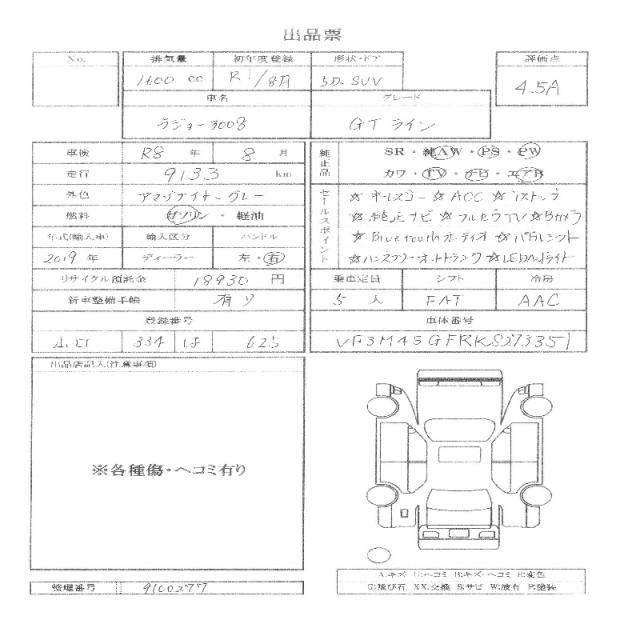 出品票
No. 排気量 初年度登録 形状・ドア 評価点
1600 cc R1/8月 5D-SUV 4.5A
車名 グレード
プジョー3008 GTライン
車検 R8 年 8 月
純正品 SR・純AW・PS・PW
走行 9133 km
カワ・TV・ナビ・エアB
外色 アマゾナイト・グレー
セールスポイント ☆キーレスゴー☆ACC☆iストップ
燃料 ガソリン・軽油
☆純正ナビ☆フルセグTV☆Bカメラ
年式(輸入車) 輸入区分 ハンドル
☆Bluetoothオーディオ☆パドルシフト
2019 年 ディーラー 左・右
☆ハンズフリーオートトランク☆LEDヘッドライト
リサイクル預託金 18930 円
乗車定員 シフト 冷房
新車整備手帳 有り
5 人 FAT AAC
登録番号 車体番号
334 は 625
VF3M45GFRKS273351
出品店記入(注意事項)
※各種傷・ヘコミ有り
A:キズ U:ヘコミ B:キズ・ヘコミ C:変色
G:飛び石 XX:交換 S:サビ W:波有 P:塗装
管理番号 9100277